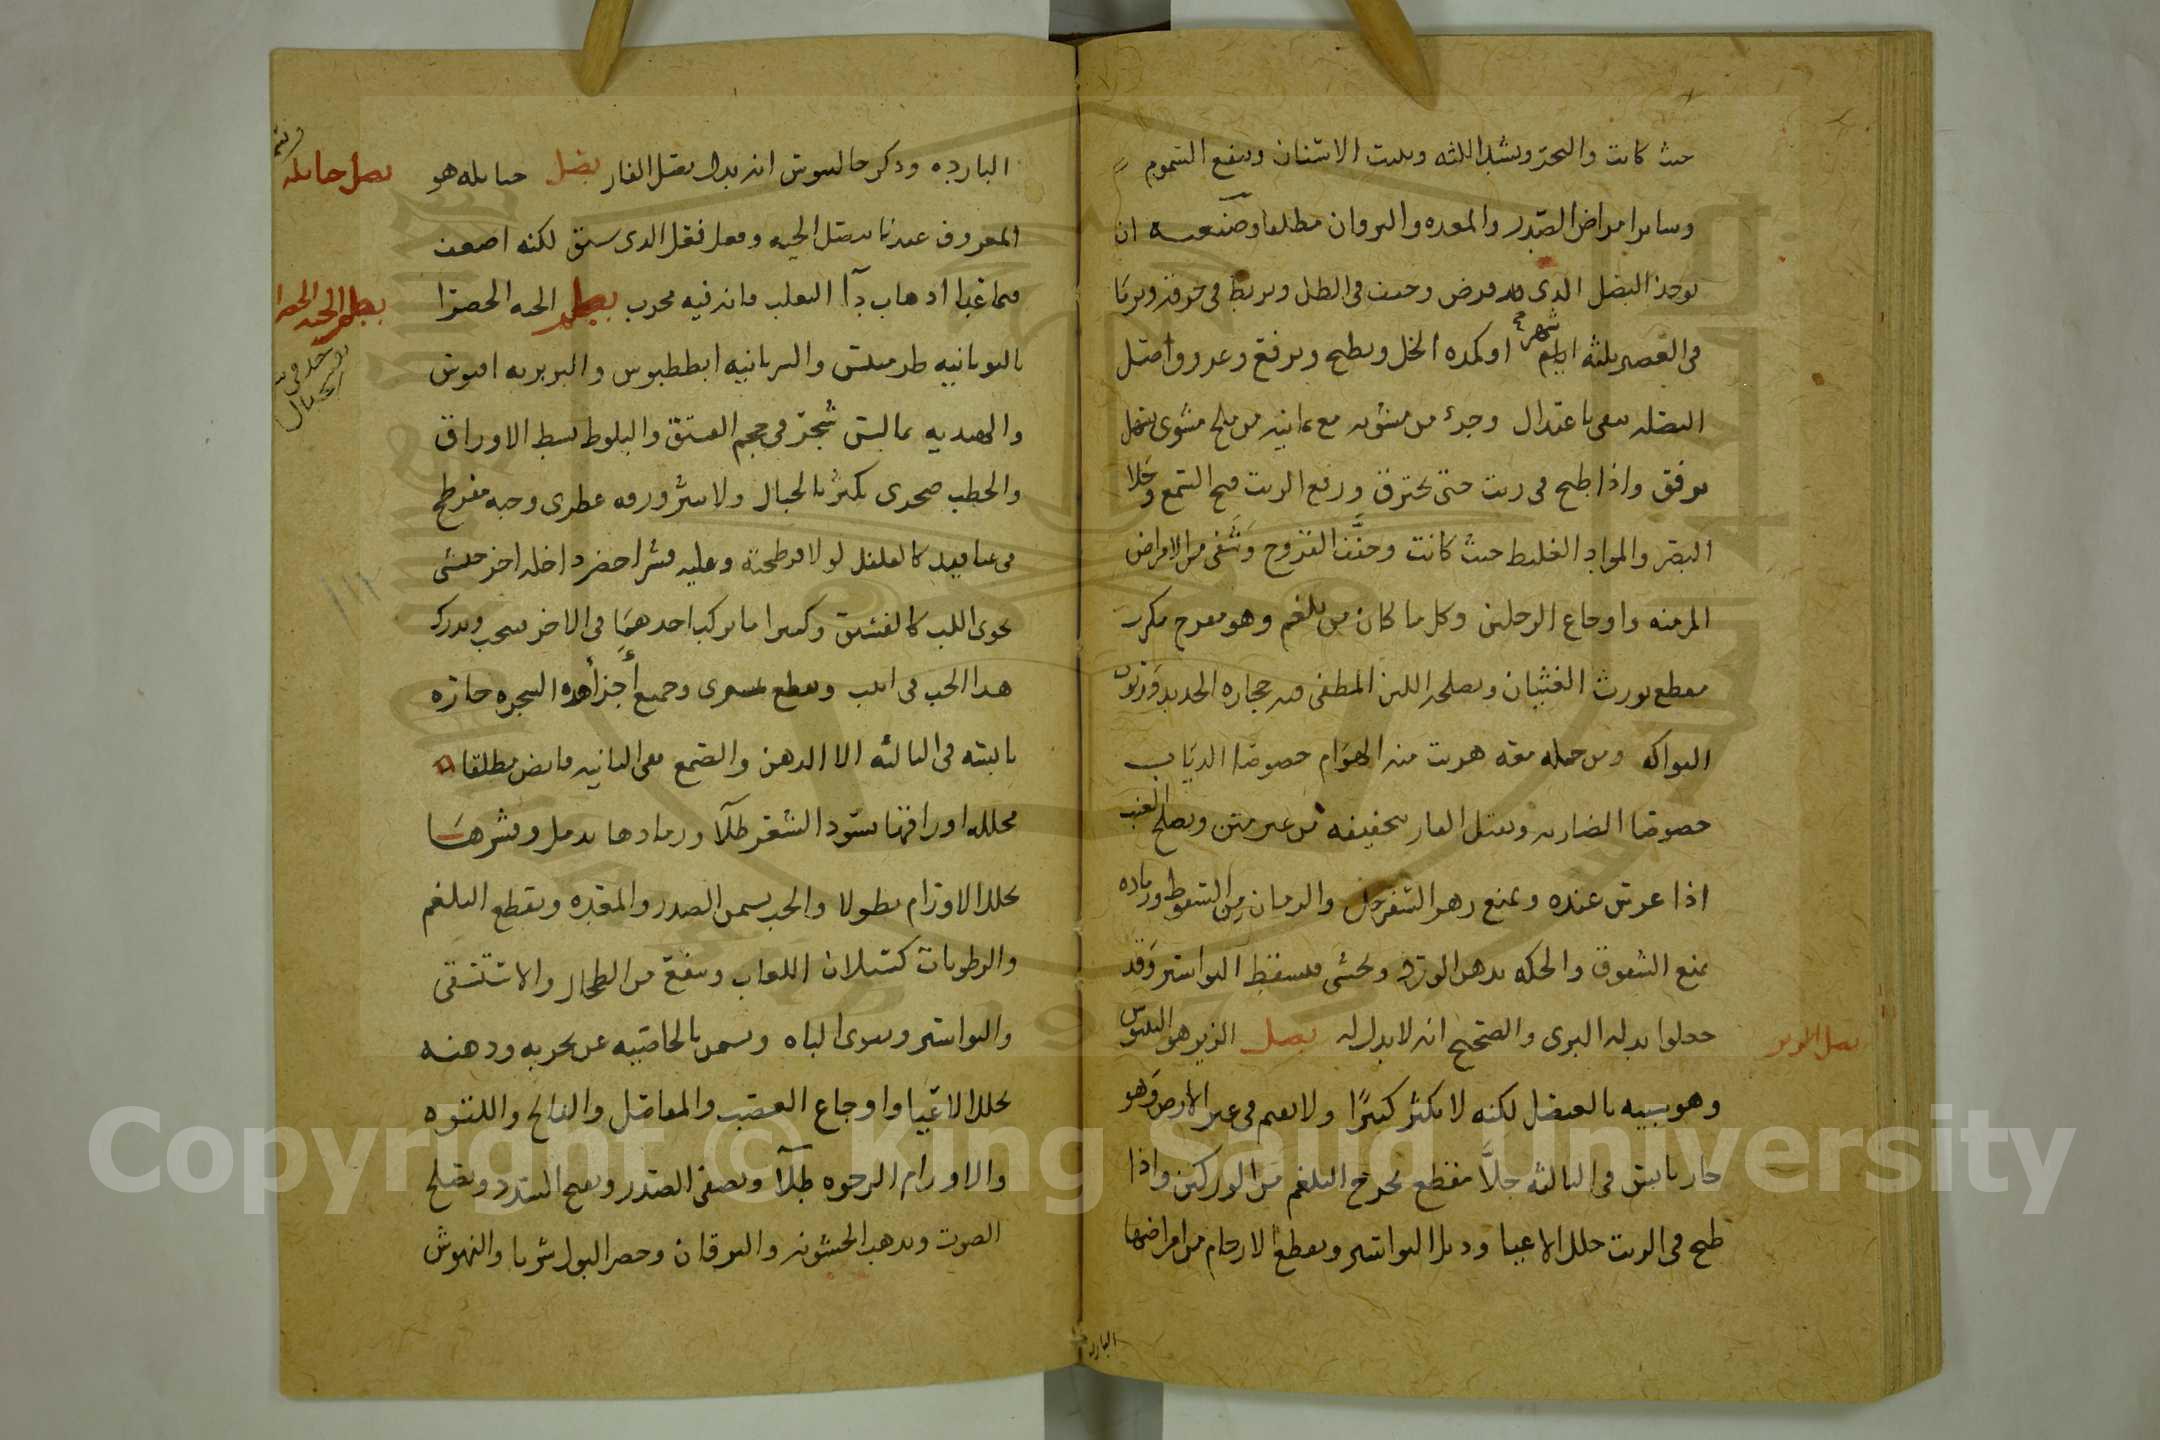 حيث كانت والبحر ويشد اللثه ويثبت الاسنان وينفع السموم
وساير امراض الصدر والمعده واليرقان مطلقا وصنعـــه ان
يوخذ البصل الذى قد قرض وجفف فى الظل ويربط فى خرقه ويرمَا
فى العصير ثلثه ايام شهر اوكمده الخل ويطبخ ويرفع وعروق اصل
البصله يبقى باعتدال وجزء من مشويه مع ثمانيه من ملح مشوى يسهل
برفق واذا طبخ فى زيت حتى يحترق ورفع الزيت فتح السمع وجَلا
البصر والمواد الغليظ حيث كانت وجفف القروح وشَفى من الامراض
المزمنه واوجاع الرجلين وكل ما كان من بلغم وهو مقرح مكرب
مقطع يورث الغثيان ويصلحه اللبن المطفى فيه حجاره الحديد وربوب
الفواكه ومن حمله معه هربت منه الهوَام خصوصا الذيَاب
خصوصا الضاريه ويقتل الفار بتجفيفه من غير نتن ويصلح العنب
اذا غرس عنده ويمنع زهر السفرجل والرمان من السقوط ورماده
يمنع الشقوق والحكه بدهن الورد ويحشى فيسقط البواسير وَقد
جعلوا بدله البرى والصحيح انه لا بدل له بصل الزير هو البلبوس
وهو شبيه بالعنصل لكنه لا يكثر كثيرًا ولا يعم فى غير الارض وَهو
حار يابس فى الثالثه جلَّا مقطع يخرج البلغم من الوركين واذا
طبخ فى الزيت حلل الاعيا ودبل البواسير ويقطع الارحام من امراضها
بصل الزير
البارده
البارده وذكر جالينوس انه بدل بصل الفار بصل حنابله هو
المعروف عندنا ببصل الحيه وفعله فعل الذى سبق لكنه اضعف
فيما عدا اذهاب دآ الثعلب فانه فيه مجرب بطم الحبه الخضرا
باليونانيه طرمينس والسريانيه ابططيوس والبربريه افيوس
والهنديه بمالس شجر فى حجم الفستق والبلوط سبط الاوراق
والحطب صخرى يكثر بالجبال ولا ينثر ورقه عطرى وحبه مفرطح
فى عناقيد كالفلفل لولا فرطحته وعليه قشر اخضر داخله اخر خشبى
يحوى اللب كالفستق وكثيرا ما يركب احدهمَا فى الاخر فينجب ويدرك
هذا الحب فى ابيب ويقطع بمسرى وجميع أجزاء هذه الشجره حاره
يابسه فى الثالثه الا الدهن والصمغ ففى الثانيه قابض مطلقا
محلله اوراقها تسود الشعر طلآ ورمادها يدمل وقشرهـــا
يحلل الاورام نطولا والحب يسمن الصدر والمعده ويقطع البلغم
والرطوبات كسيلان اللعاب وينفع من الطحال والاستسقى
والبواسير ويقوى الباه ويسمن بالخاصيه عن تجربه ودهنـه
يحلل الاعيا واوجاع العصب والمفاصل والفالج واللقوه
والاورام الرخوه طلآ ويصفى الصدر ويفتح السدد ويصلح
الصوت ويذهب الخشونه واليرقان وحصر البول شربا والنهوش
بصل حنابله
بطم الحبه الخضرا